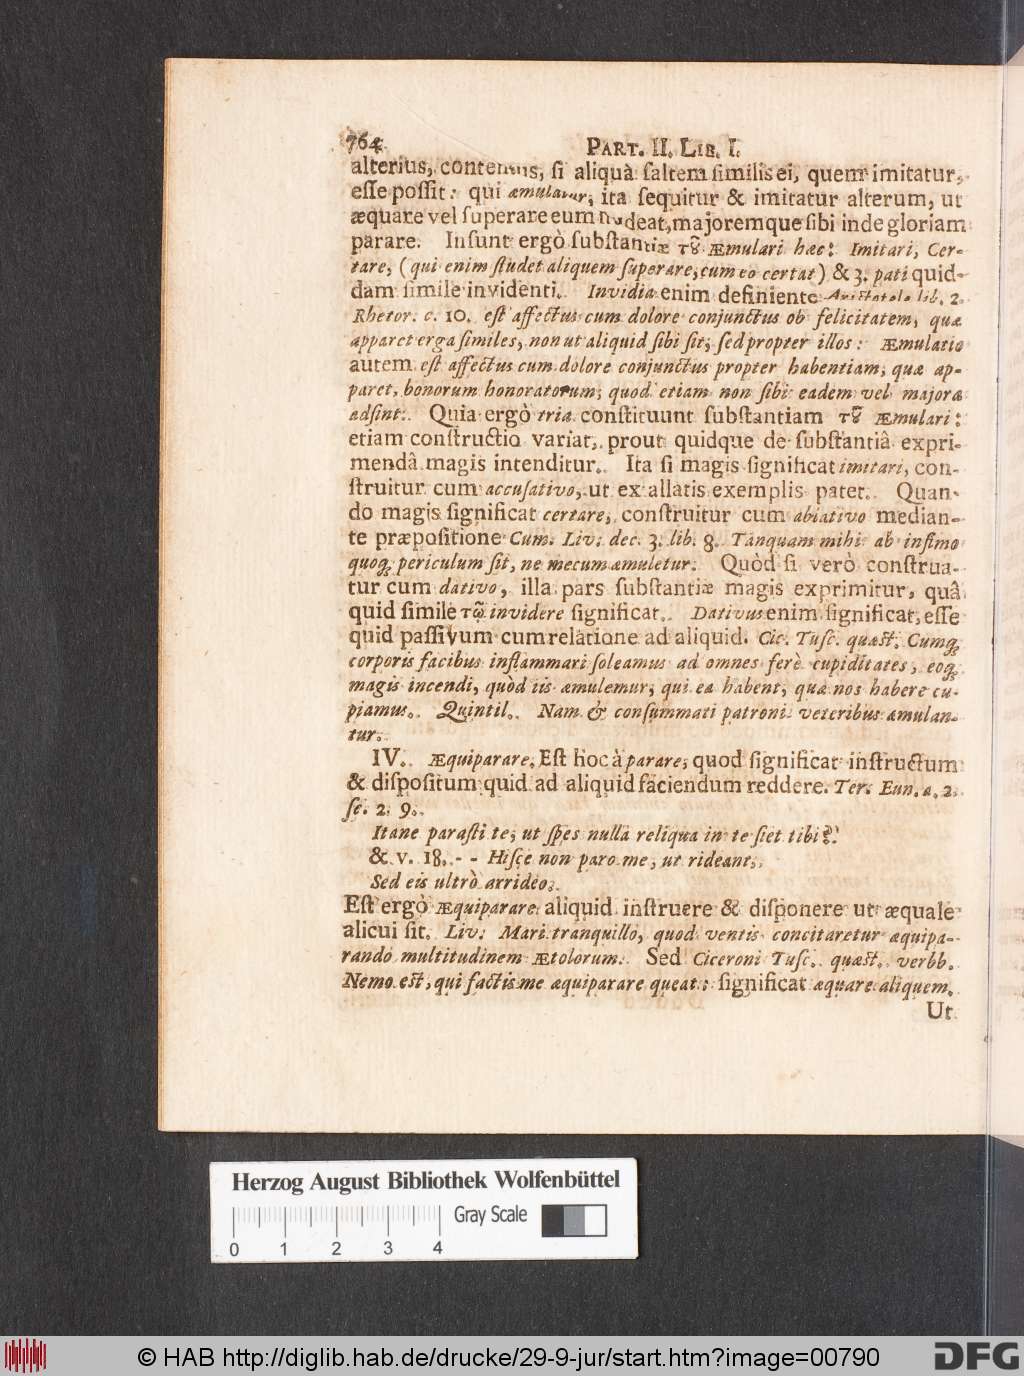 764 PART. II. LIB. I.
alterius, contentus, si aliquâ saltem similis ei, quem imitatur,
esse possit: qui æmulatur, ita sequitur & imitatur alterum, ut
æquare vel superare eum studeat, majoremque sibi inde gloriam
parare. Insunt ergò substantiæ τȣ͂ Æmulari hæc: Imitari, Cer-
tare, (qui enim studet aliquem superare, cum eo certat) & 3. pati quid-
dam simile invidenti. Invidia enim definiente Aristotele lib. 2.
Rhetor. c. 10. est affectus cum dolore conjunctus ob felicitatem, quæ
apparet erga similes, non ut aliquid sibi sit, sed propter illos: Æmulatio
autem est affectus cum dolore conjunctus propter habentiam, quæ ap-
paret, bonorum honoratorum; quod etiam non sibi eadem vel majora
adsint. Quia ergò tria constituunt substantiam τȣ͂ Æmulari:
etiam constructio variat, prout quidque de substantiâ expri-
mendâ magis intenditur. Ita si magis significat imitari, con-
struitur cum accusativo, ut ex allatis exemplis patet. Quan-
do magis significat certare, construitur cum ablativo median-
te præpositione Cum. Liv. dec. 3. lib. 8. Tanquam mihi ab infimo
quoq; periculum sit, ne mecum æmuletur. Quòd si verò construa-
tur cum dativo, illa pars substantiæ magis exprimitur, quâ
quid simile τῷ invidere significat. Dativus enim significat, esse
quid passivum cum relatione ad aliquid. Cic. Tusc. quæst. Cumq;
corporis facibus inflammari soleamus ad omnes ferè cupiditates, eoq;
magis incendi, quòd iis æmulemur, qui ea habent, quæ nos habere cu-
piamus. Quintil. Nam & consummati patroni veteribus æmulan-
tur.
IV. Æquiparare. Est hoc à parare, quod significat instructum
& dispositum quid ad aliquid faciendum reddere. Ter. Eun. a. 2.
sc. 2. 9.
Itane parasti te, ut spes nulla reliqua in te siet tibi?
& v. 18. - - Hisce non paro me, ut rideant,
Sed eis ultrò arrideo.
Est ergò Æquiparare aliquid instruere & disponere ut æquale
alicui sit. Liv. Mari tranquillo, quod ventis concitaretur æquipa-
rando multitudinem Ætolorum. Sed Ciceroni Tusc. quæst. verbb.
Nemo est, qui factis me æquiparare queat: significat æquare aliquem.
Ut
Herzog August Bibliothek Wolfenbüttel
0 1 2 3 4 Gray Scale
© HAB http://diglib.hab.de/drucke/29-9-jur/start.htm?image=00790 DFG